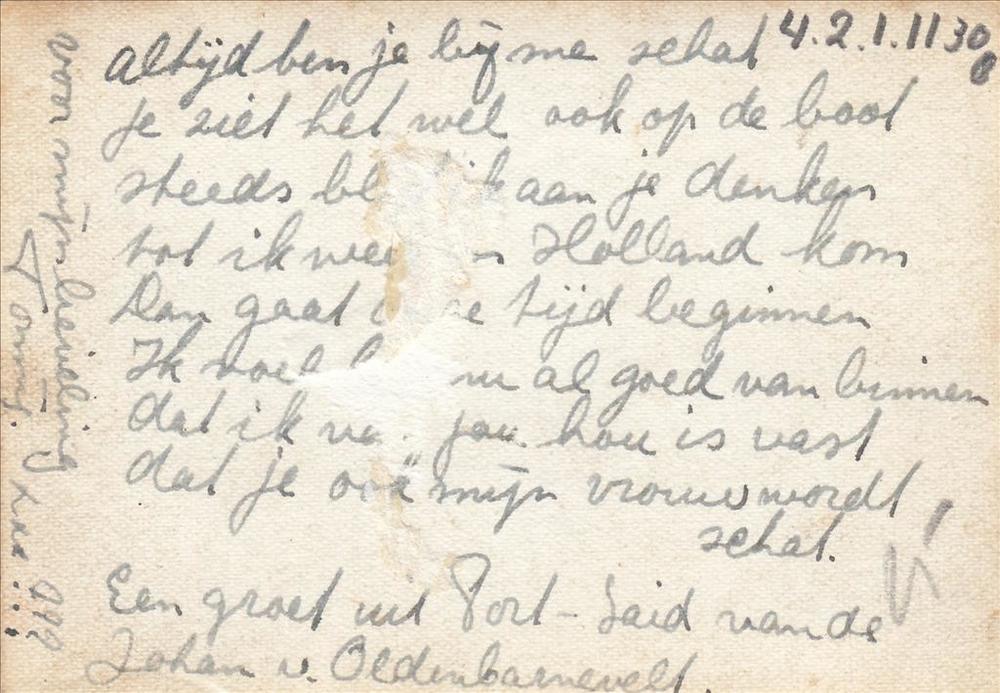 altijd ben je bij me schat 4.2.1.1130
je ziet het wel ook op de boot
steeds bl ik aan je denken
tot ik wee n Holland kom
Dan gaat tijd beginnen
Ik voel nu al goed van binnen
dat ik va jou hou is vast
dat je ook mijn vrouw wordt,
schat.
Een groet uit Port-Said van de
Johan v. Oldenbarnevelt.
voor mijn lieveling
Tonny.